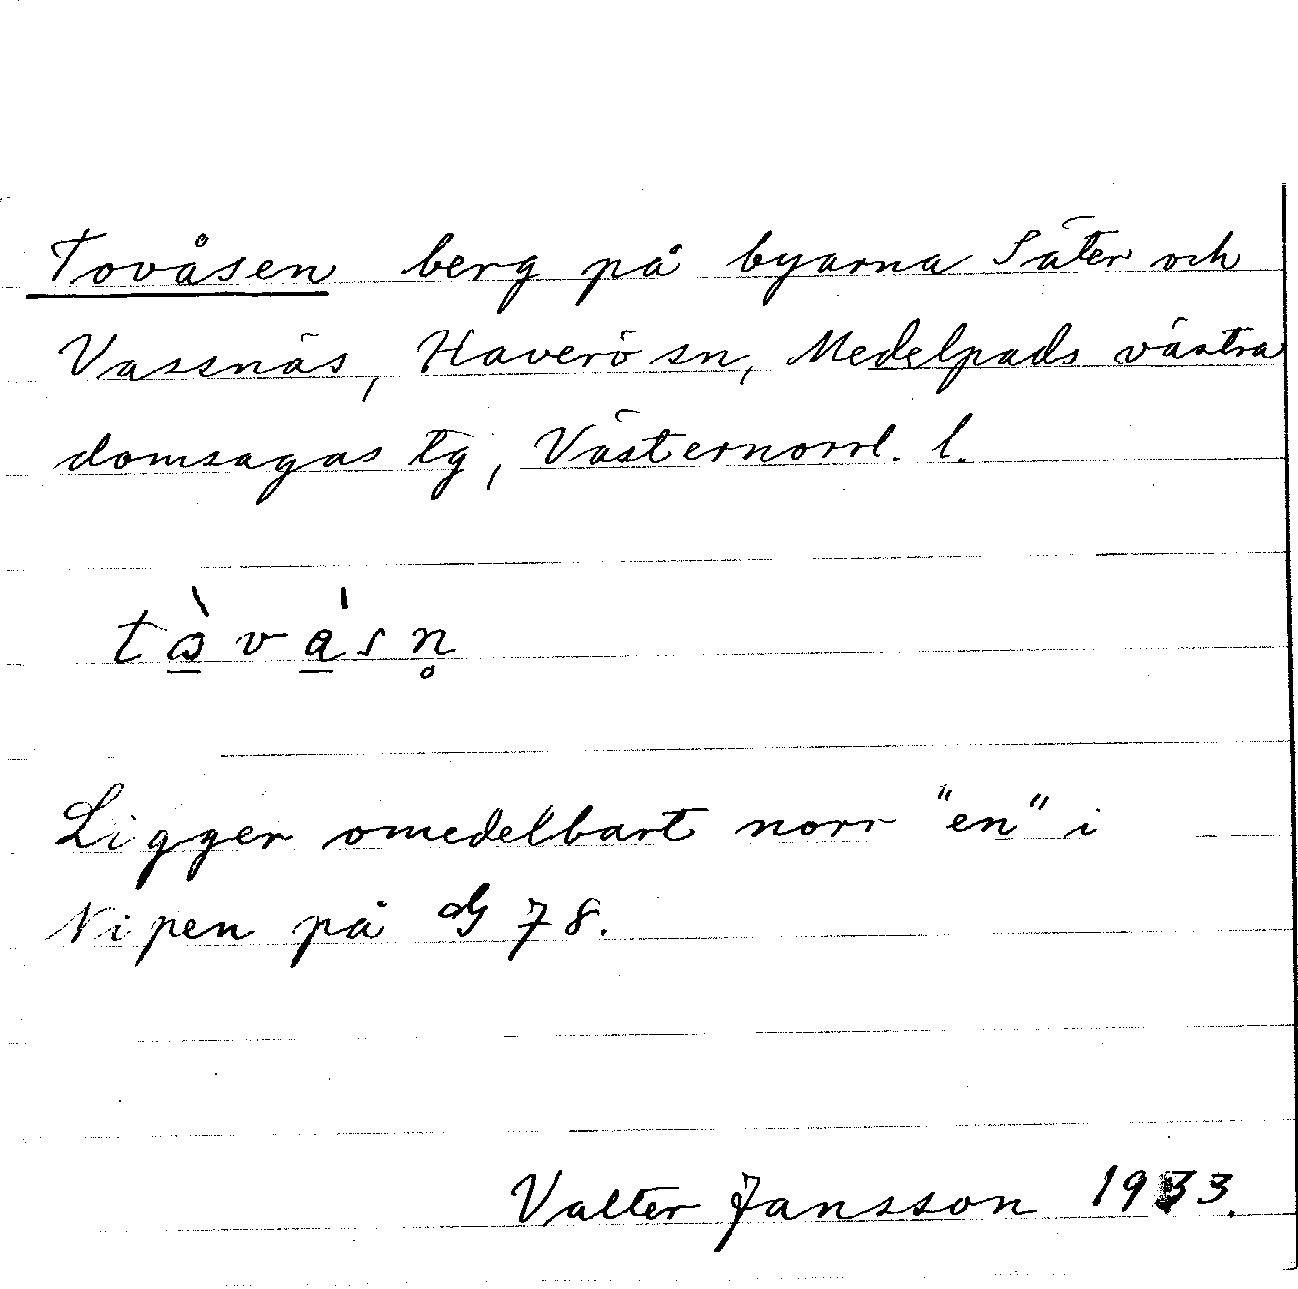 Tovåsen berg på byarna Säter och
Vassnäs, Haverö sn, Medelpads västra
domsagas tg, Västernorrl. l.
Ligger omedelbart norr "en" i
Nipen på G 78.
Valter Jansson 1933.